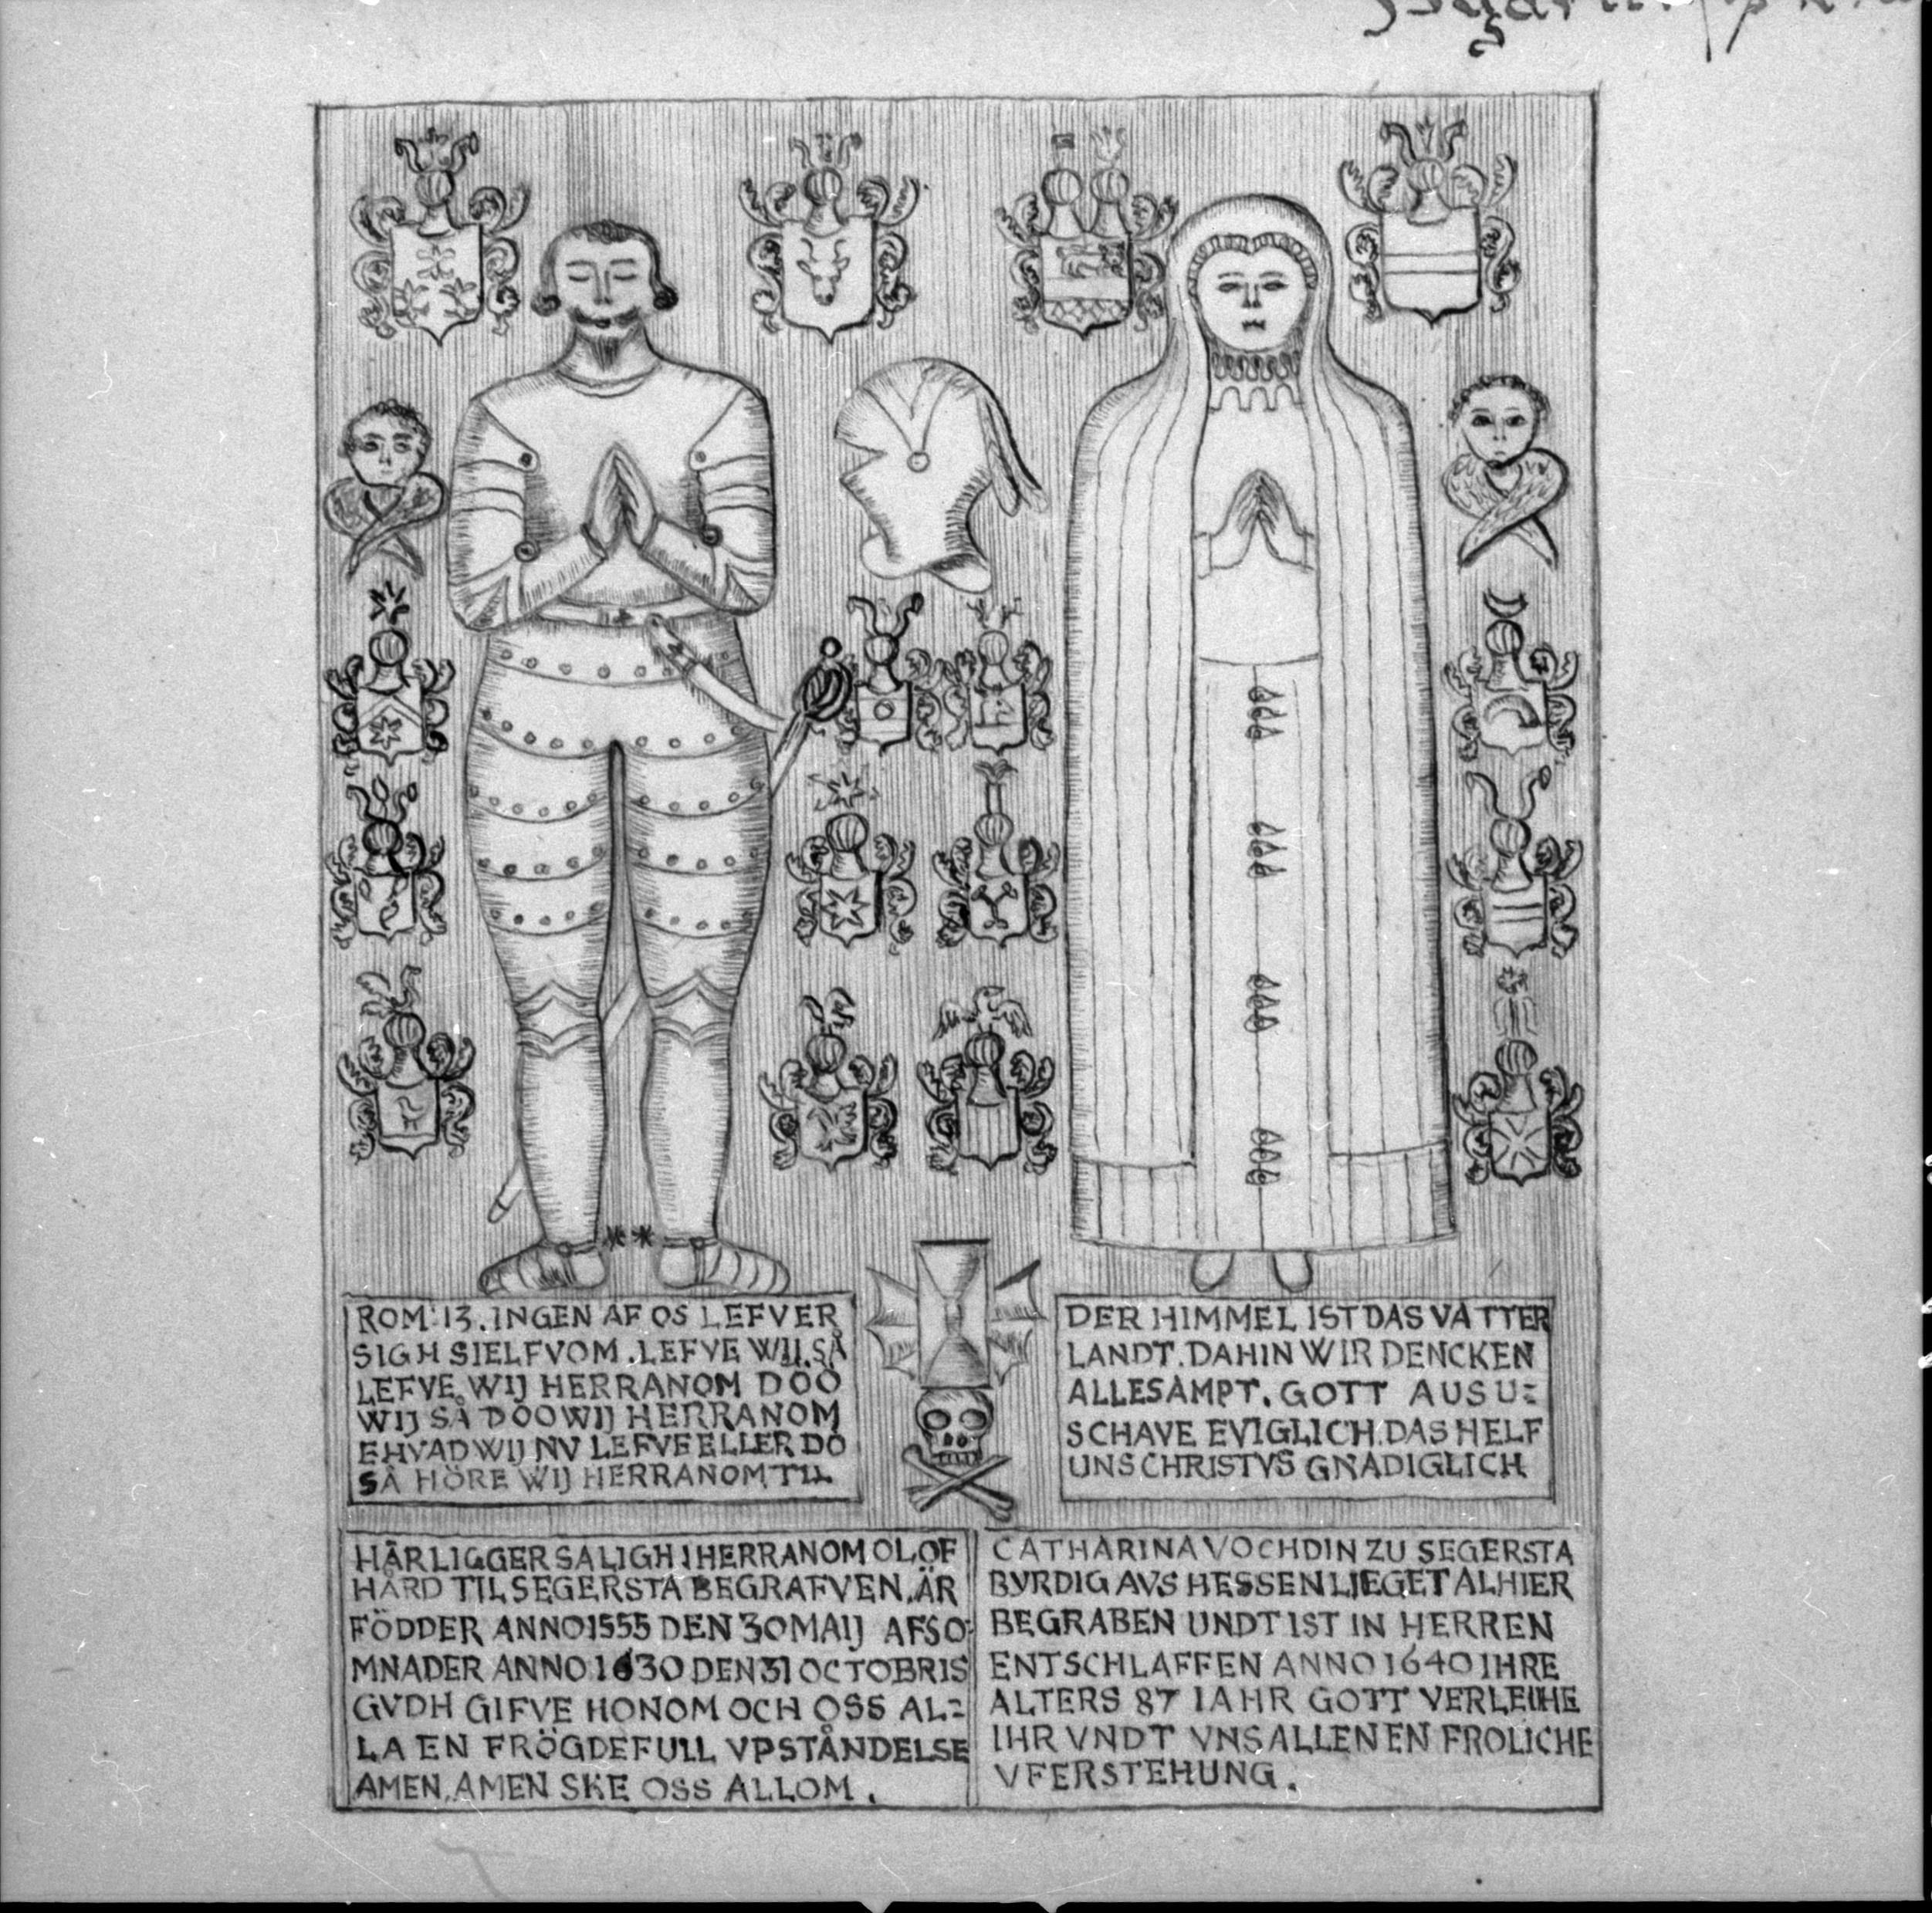 ROM: 13. INGEN AF OS LEFVER
SIGH SIELFVOM. LEFVE WIJ. SÅ
LEFVE WIJ HERRANOM DÖÖ
WIJ SÅ DÖÖ WIJ HERRANOM
EHVAD WIJ NV LEFVE ELLER DÖ
SÅ HÖRE WIJ HERRANOM TIL
DER HIMMEL IST DAS VATTER
LANDT. DAHIN WIR DENCKEN
ALLESAMPT. GOTT AUSU=
SCHAVE EVIGLICH. DAS HELF
UNS CHRISTVS GNÄDIGLICH
HÄR LIGGER SALIGH I HERRANOM OLOF
HÅRD TIL SEGERSTA BEGRAFVEN. ÄR
FÖDDER ANNO 1555 DEN 30 MAIJ AFSO=
MNADER ANNO 1630 DEN 31 OCTOBRIS
GVDH GIFVE HONOM OCH OSS AL=
LA EN FRÖGDEFULL VPSTÅNDELSE
AMEN, AMEN SKE OSS ALLOM.
CATHARINA VOCHDIN ZU SEGERSTA
BVRDIG AVS HESSEN LIEGET ALHIER
BEGRABEN UNDT IST IN HERREN
ENTSCHLAFFEN ANNO 1640 IHRE
ALTERS 87 IAHR GOTT VERLEIHE
IHR VNDT VNS ALLEN EN FROLICHE
VFERSTEHUNG.